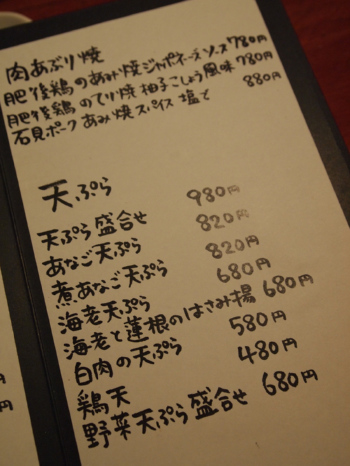 肉あぶり焼
肥後鶏のあみ焼ジャポネーズソース 780円
肥後鶏のてり焼 柚子こしょう風味 780円
石見ポークあみ焼スパイス塩と 880円
天ぷら
天ぷら盛合せ 980円
あなご天ぷら 820円
煮あなご天ぷら 820円
海老天ぷら 680円
海老と蓮根のはさみ揚 680円
白肉の天ぷら 580円
鶏天 480円
野菜天ぷら盛合せ 680円